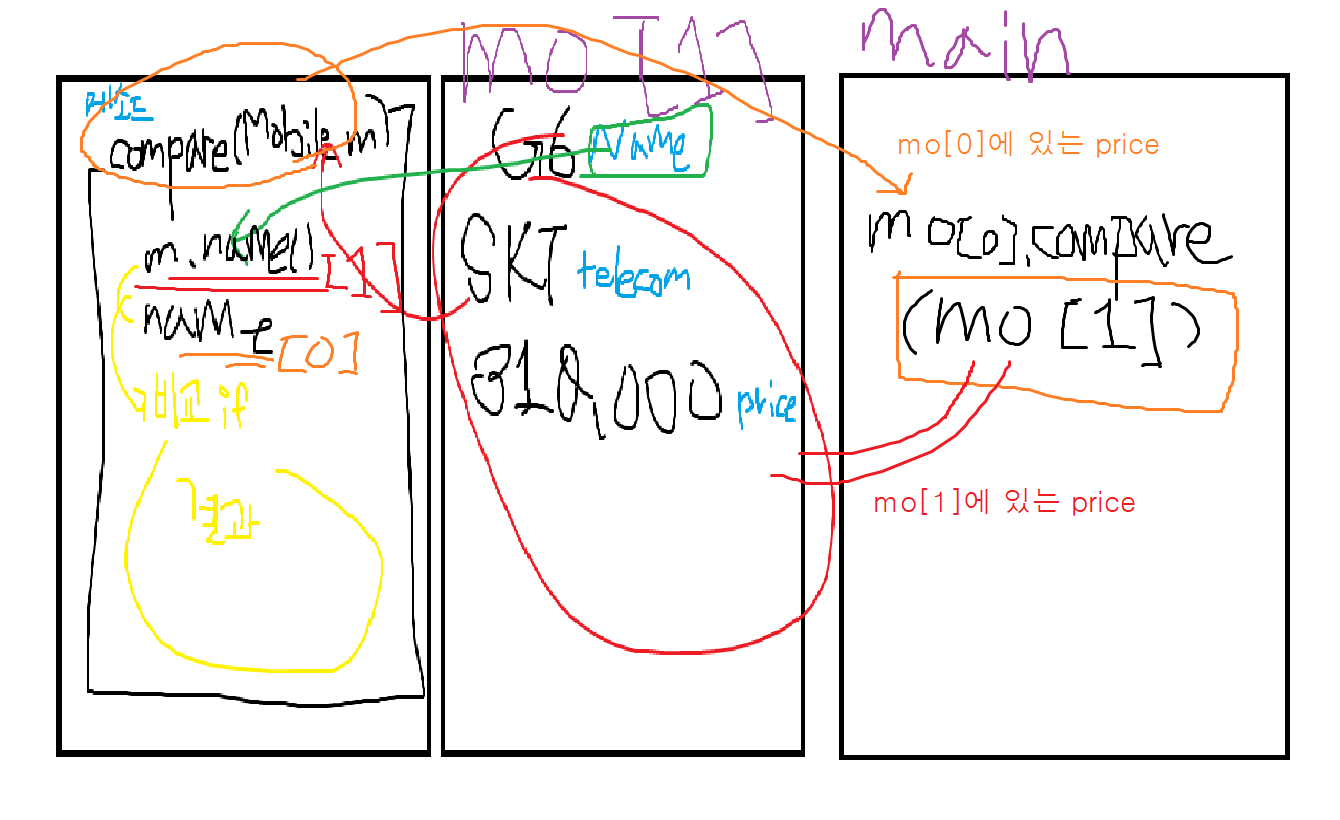 메소드
compare(Mobile m)
m.name() [1]
name [0]
비교 if
결과
mo [1]
G6 Name
SKT telecom
310,000 price
main
mo[0]에 있는 price
mo[0].compare
(mo [1])
mo[1]에 있는 price